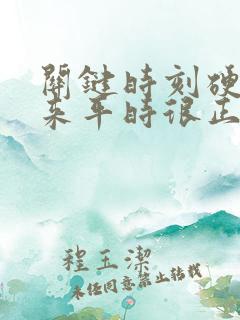 關鍵時刻硬
來平時很正
程玉潔
未经同意禁止转载